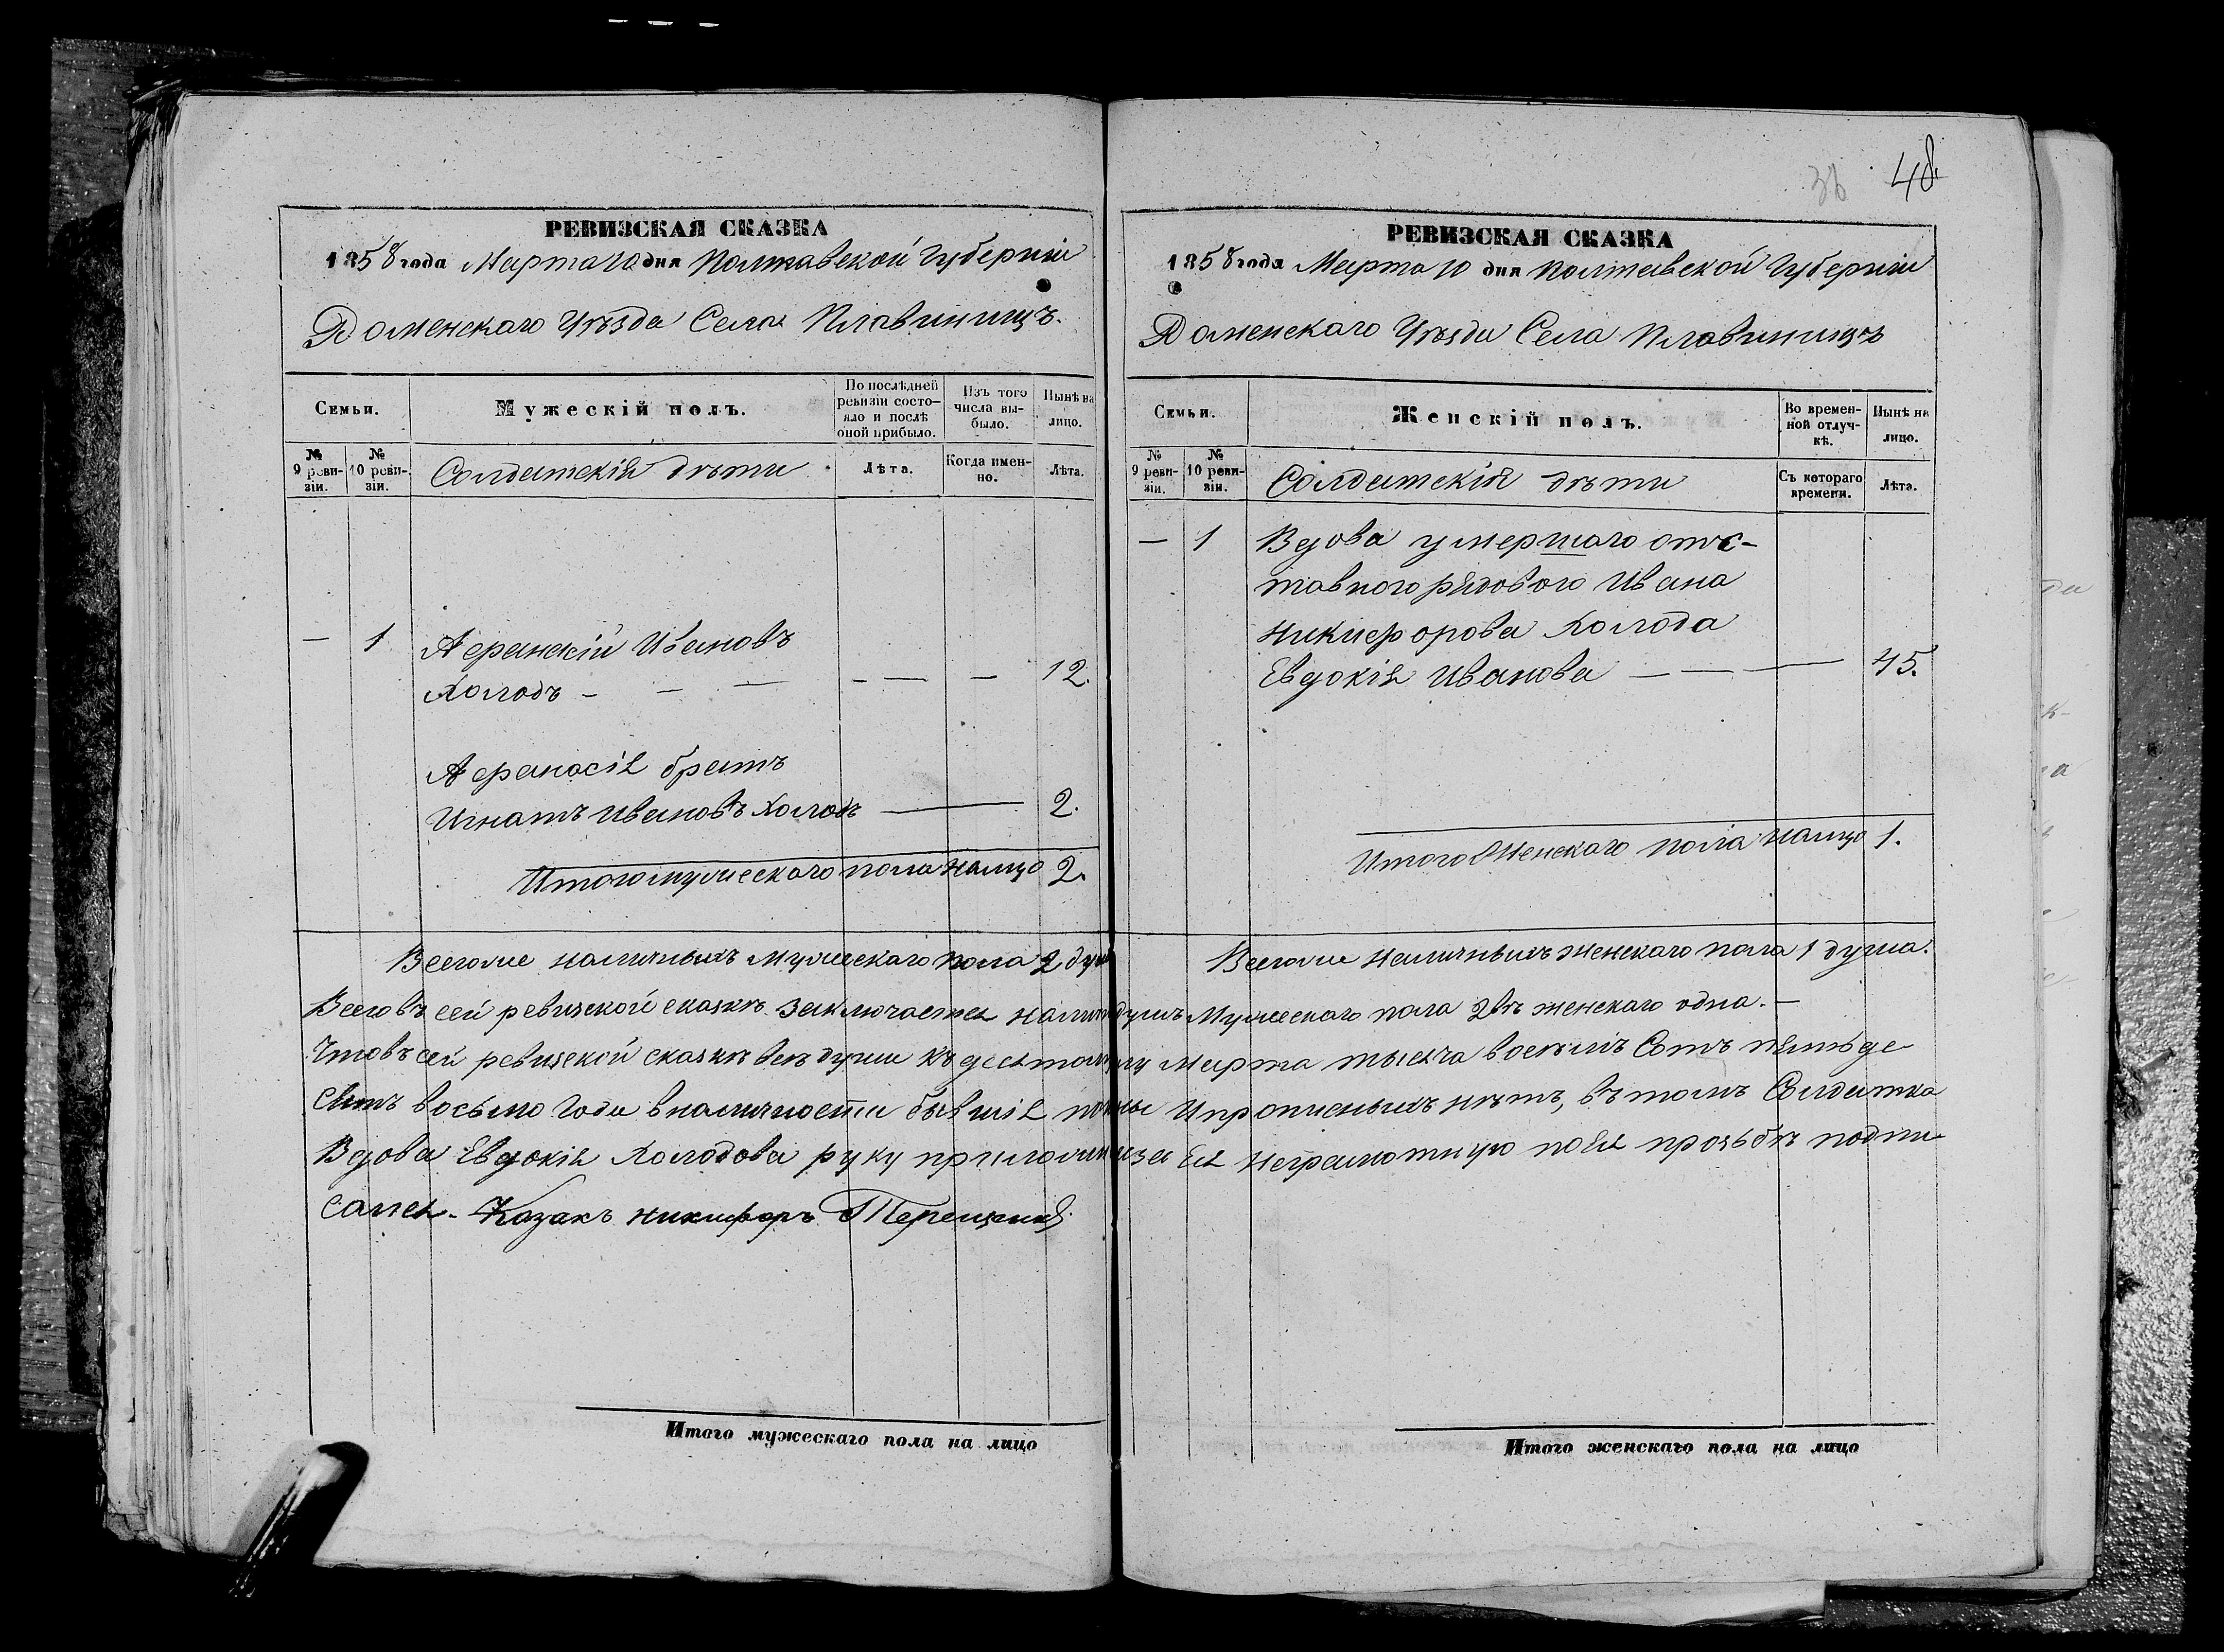 48
РЕВИЗСКАЯ СКАЗКА
1858 года Марта 10 дня Полтавской Губерніи
Роменскаго Уѣзда Села Плавинищъ.
Семьи.
Мужескій полъ.
По послѣдней ревизіи состояло и послѣ оной прибыло.
Изъ того числа выбыло.
Нынѣ на лицо.
№ 9 ревизіи.
№ 10 ревизіи.
Солдатскія дѣти
Лѣта.
Когда именно.
Лѣта.
— 1 Афанасій Ивановъ
Холодъ - — — - — — 12.
Афанасія братъ
Игнатъ Ивановъ Холодъ — 2.
Итого мужескаго пола налицо 2.
РЕВИЗСКАЯ СКАЗКА
1858 года Марта 10 дня Полтавской Губерніи
Роменскаго Уѣзда Села Плавинищъ
Семьи.
Женскій полъ.
Во временной отлучкѣ.
Нынѣ на лицо.
№ 9 ревизіи.
№ 10 ревизіи.
Солдатскія дѣти
Съ котораго времени.
Лѣта.
— 1 Вдова умершаго отс-
тавного рядового Ивана
Никифорова Холода
Евдокія Иванова — — — 45.
Итого Женскаго пола налицо 1.
Всего же наличныхъ Мужескаго пола 2 душ
Всего же наличныхъ женскаго пола 1 душа.
Всего въ сей ревизской сказкѣ заключается налич душъ Мужескаго пола 2 вѣ женскаго одна. —
Что въ сей ревизской сказкѣ всѣ души къ десятому Марта тысяча восѣмъ Сотъ пятьде
Сятъ восьмо года в наличности бывшія показны И прописныхъ нѣтъ, въ томъ Солдатка
Вдова Евдокія Холодова руку приложила за Ея неграмотную по Ея прозьбѣ подпи
сался - Козакъ Никифоръ Терещенко
Итого мужескаго пола на лицо
Итого женскаго пола на лицо